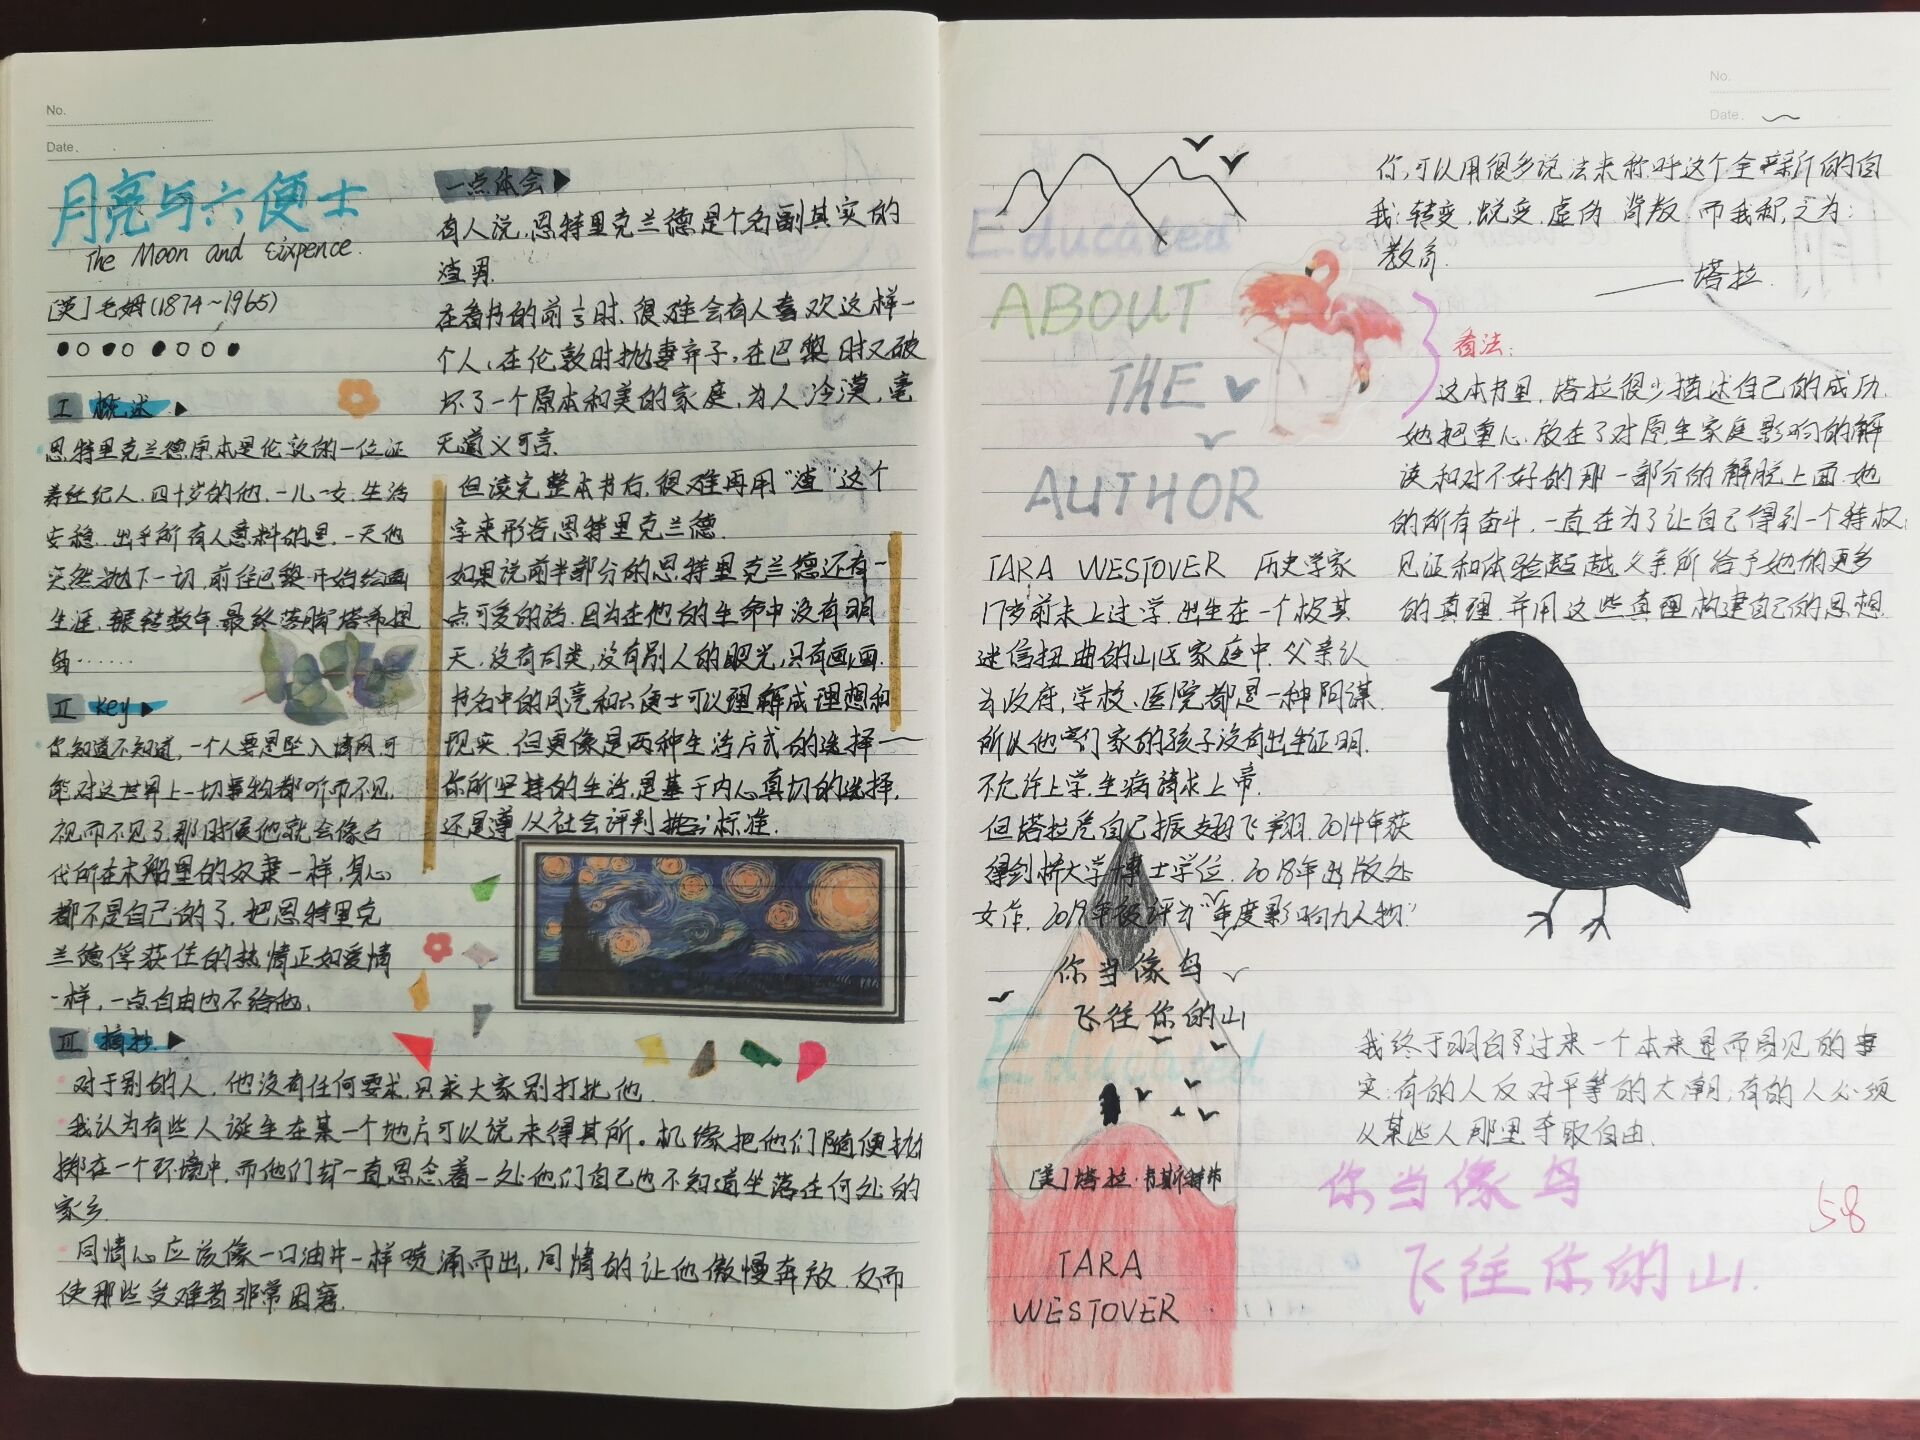 No.
Date.
月亮与六便士
The Moon and Sixpence.
[英]毛姆(1874~1965)
I 概述
思特里克兰德原本是伦敦的一位证
券经纪人.四十岁的他,一儿一女,生活
安稳.出乎所有人意料的是,一天他
突然抛下一切,前往巴黎开始绘画
生涯,辗转数年,最终落脚塔希提
岛……
II key
你知道不知道,一个人要是坠入情网,可
能对这世界上一切事物都听而不见,
视而不见了.那时候他就会像古
代所在木船里的奴隶一样,身心
都不是自己的了.把思特里克
兰德俘获住的热情正如爱情
一样,一点自由也不给他.
III 摘抄
对于别的人,他没有任何要求,只求大家别打扰他.
我认为有些人诞生在某一个地方可以说未得其所。机缘把他们随便抛
掷在一个环境中,而他们却一直思念着一处他们自己也不知道坐落在何处的
家乡.
同情心应该像一口油井一样喷涌而出,同情的让他傲慢奔放.反而
使那些受难者非常困窘.
一点体会
有人说,思特里克兰德是个名副其实的
渣男.
在看书的前言时,很难会有人喜欢这样一
个人,在伦敦时抛妻弃子,在巴黎时又破
坏了一个原本和美的家庭,为人冷漠,毫
无道义可言.
但读完整本书后,很难再用“渣”这个
字来形容思特里克兰德.
如果说前半部分的思特里克兰德还有一
点可爱的话,因为在他的生命中没有明
天,没有同类,没有别人的眼光,只有画画.
书名中的月亮和六便士可以理解成理想和
现实,但更像是两种生活方式的选择——
你所坚持的生活,是基于内心真切的选择,
还是遵从社会评判标准.
No.
Date.
Educated
ABOUT
THE
AUTHOR
TARA WESTOVER 历史学家
17岁前未上过学.出生在一个极其
迷信扭曲的山区家庭中.父亲认
为政府,学校、医院都是一种阴谋.
所以他们家的孩子没有出生证明.
不允许上学,生病请求上帝.
但塔拉凭自己振翅飞翔.2014年获
得剑桥大学博士学位.2018年出版处
女作.2019年被评为“年度影响力人物”
你当像鸟
飞往你的山
Educated
[美]塔拉·韦斯特弗
TARA
WESTOVER
你可以用很多说法来称呼这个全新的自
我:转变.蜕变.虚伪.背叛.而我称之为:
教育.
——塔拉.
看法:
这本书里,塔拉很少描述自己的成功.
她把重心放在了对原生家庭影响的解
读和对不好的那一部分的解脱上面.她
的所有奋斗,一直在为了让自己得到一个特权:
见证和体验超越父亲所给予她的更多
的真理.并用这些真理构建自己的思想.
我终于明白过来一个本来显而易见的事
实:有的人反对平等的大潮;有的人必须
从某些人那里夺取自由.
你当像鸟
飞往你的山.
58